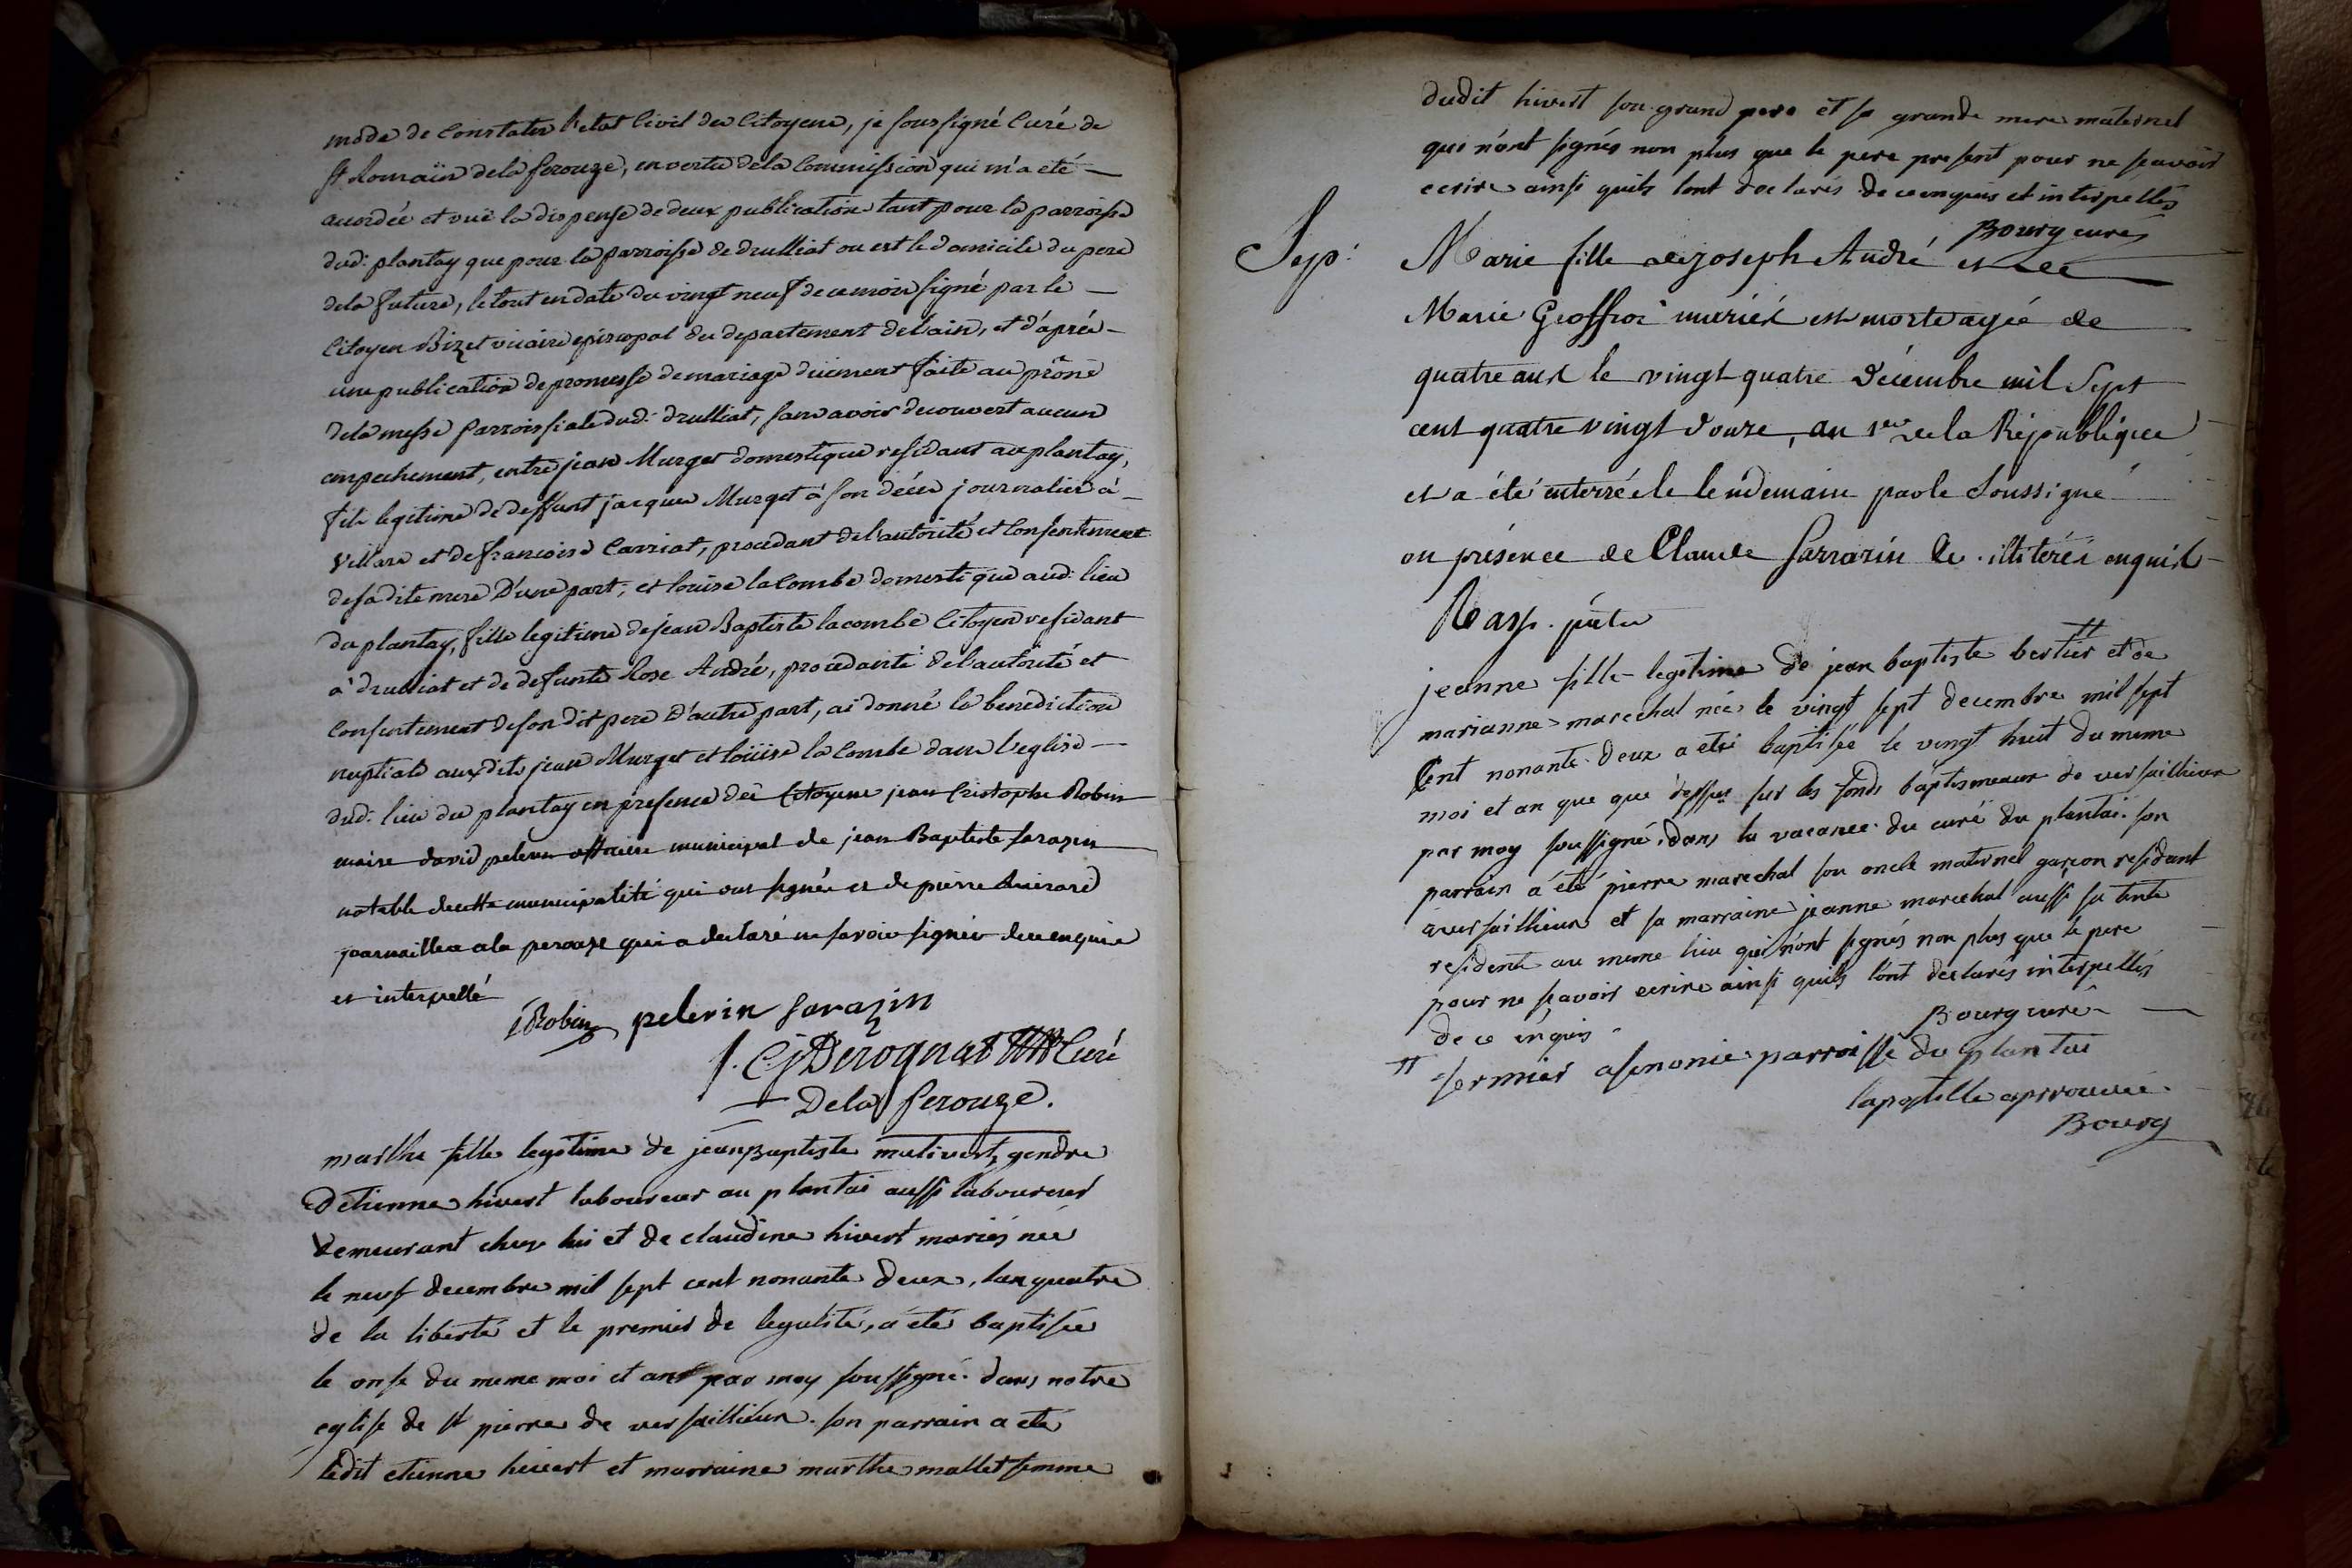 mode de Constater l'etat Civil des Citoyens, je soussigné Curé de
St Romain dela perouze, en vertu dela Commission qui m'a été
acordée et vuë la dispense de deux publications tant pour la parroisse
dud: plantay que pour la parroisse de druilliat ou est le domicile du pere
dela future, le tout en date du vingt neuf de ce mois signé par le
Citoyen Bizet vicaire episcopal du departement delain, et d'après
une publication de promesse de mariage düement faite au prône
dela messe parroissiale dud: drulliat, sans avoir decouvert aucun
empechement, entre jean Murget domestique residant au plantay,
fils legitime de deffunt jacques Murget à son décès journalier à
Villars et de francoise Carriat, procedant de l'autorité et Consentement
de sa dite mere D'une part; et louise la Combe domestique aud: lieu
du plantay, fille legitime de jean Baptiste lacombe Citoyen residant
à drulliat et de defunte Rose André, procedante de l'autorité et
Consentement de son dit pere D'autre part, ai donné la benediction
nuptiale auxdits jean Murget et loüise la Combe dans l'eglise
dud: lieu du plantay en presence des Citoyens jean Cristophe Robin
maire david pelerin officier municipal de jean Baptiste sarazin
notable de cette municipalité qui ont signés et de pierre
a la perouze qui a declaré ne savoir signer de ce enquis
et interpellé
Robin pelerin sarazin
f. C. j. Derognat Curé
Dela perouze.
marthe fille legitime de jean Baptiste mativert, gendre
detienne hivert laboureur au plantai aussi laboureur
demeurant chez lui et de claudine hivert mariés née
le neuf decembre mil sept cent nonante deux, lan quatre
de la liberté et le premier de legalité, a été baptisée
le onse du meme moi et an par moy soussigné dans notre
eglise de st pierre de versaillieux. son parrain a eté
ledit etienne hivert et marraine marthe mallet femme
dudit hivert son grand pere et sa grande mere maternel
qui n'ont signés non plus que le pere present pour ne scavoir
ecrire ainsi quils lont declarés de ce enquis et interpellés
Bourg curé
Sep: Marie fille de joseph André et de
Marie Geoffroi mariés est morte agée de
quatre ans le vingt quatre décembre mil Sept
cent quatre vingt douze, an 1er de la République
et a été enterrée le lendemain par le Soussigné
en présence de Claude Sarrazin &c. illitérés enquis
jeanne fille legitime de jean baptiste bertier # et de
marianne marechal née le vingt sept decembre mil sept
Cent nonante deux a eté baptisée le vingt huit du meme
moi et an que que dessus sur les fonds baptismeaux de versaillieux
par moy soussigné, dans la vacance du curé du plantai. son
parrain a été pierre marechal son oncle maternel garcon residant
a versaillieux et sa marraine jeanne marechal aussi sa tante
residente au meme lieu qui n'ont signés non plus que le pere
pour ne scavoir ecrire ainsi quils lont declarés interpellés
de ce enquis.
Bourg curé
# fermier parroisse du plantai
lapostille approuvée.
Bourg